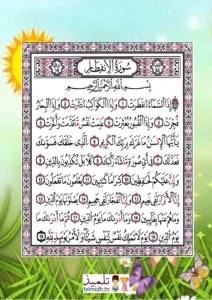 سورة الانفطار
بسم الله الرحمن الرحيم
إذا السماء انفطرت ۝ وإذا الكواكب انتثرت ۝ وإذا البحار
فجرت ۝ وإذا القبور بعثرت ۝ علمت نفس ما قدمت وأخرت ۝
يا أيها الإنسان ما غرك بربك الكريم ۝ الذي خلقك فسواك
فعدلك ۝ في أي صورة ما شاء ركبك ۝ كلا بل تكذبون بالدين ۝
وإن عليكم لحافظين ۝ كراما كاتبين ۝ يعلمون ما تفعلون ۝
إن الأبرار لفي نعيم ۝ وإن الفجار لفي جحيم ۝ يصلونها يوم الدين ۝
وما هم عنها بغائبين ۝ وما أدراك ما يوم الدين ۝ ثم ما أدراك ما
يوم الدين ۝ يوم لا تملك نفس لنفس شيئا والأمر يومئذ لله ۝
تلميذ
telmidh.tn